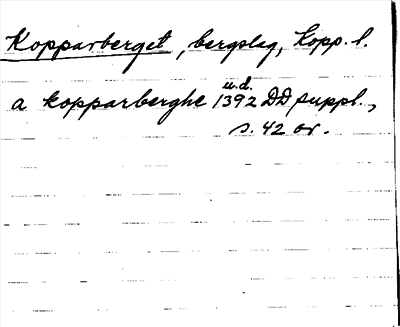 Kopparberget, bergslag, Kopp. l.
u.d.
a kopparberghe 1392 DD suppl.,
s. 42 or.